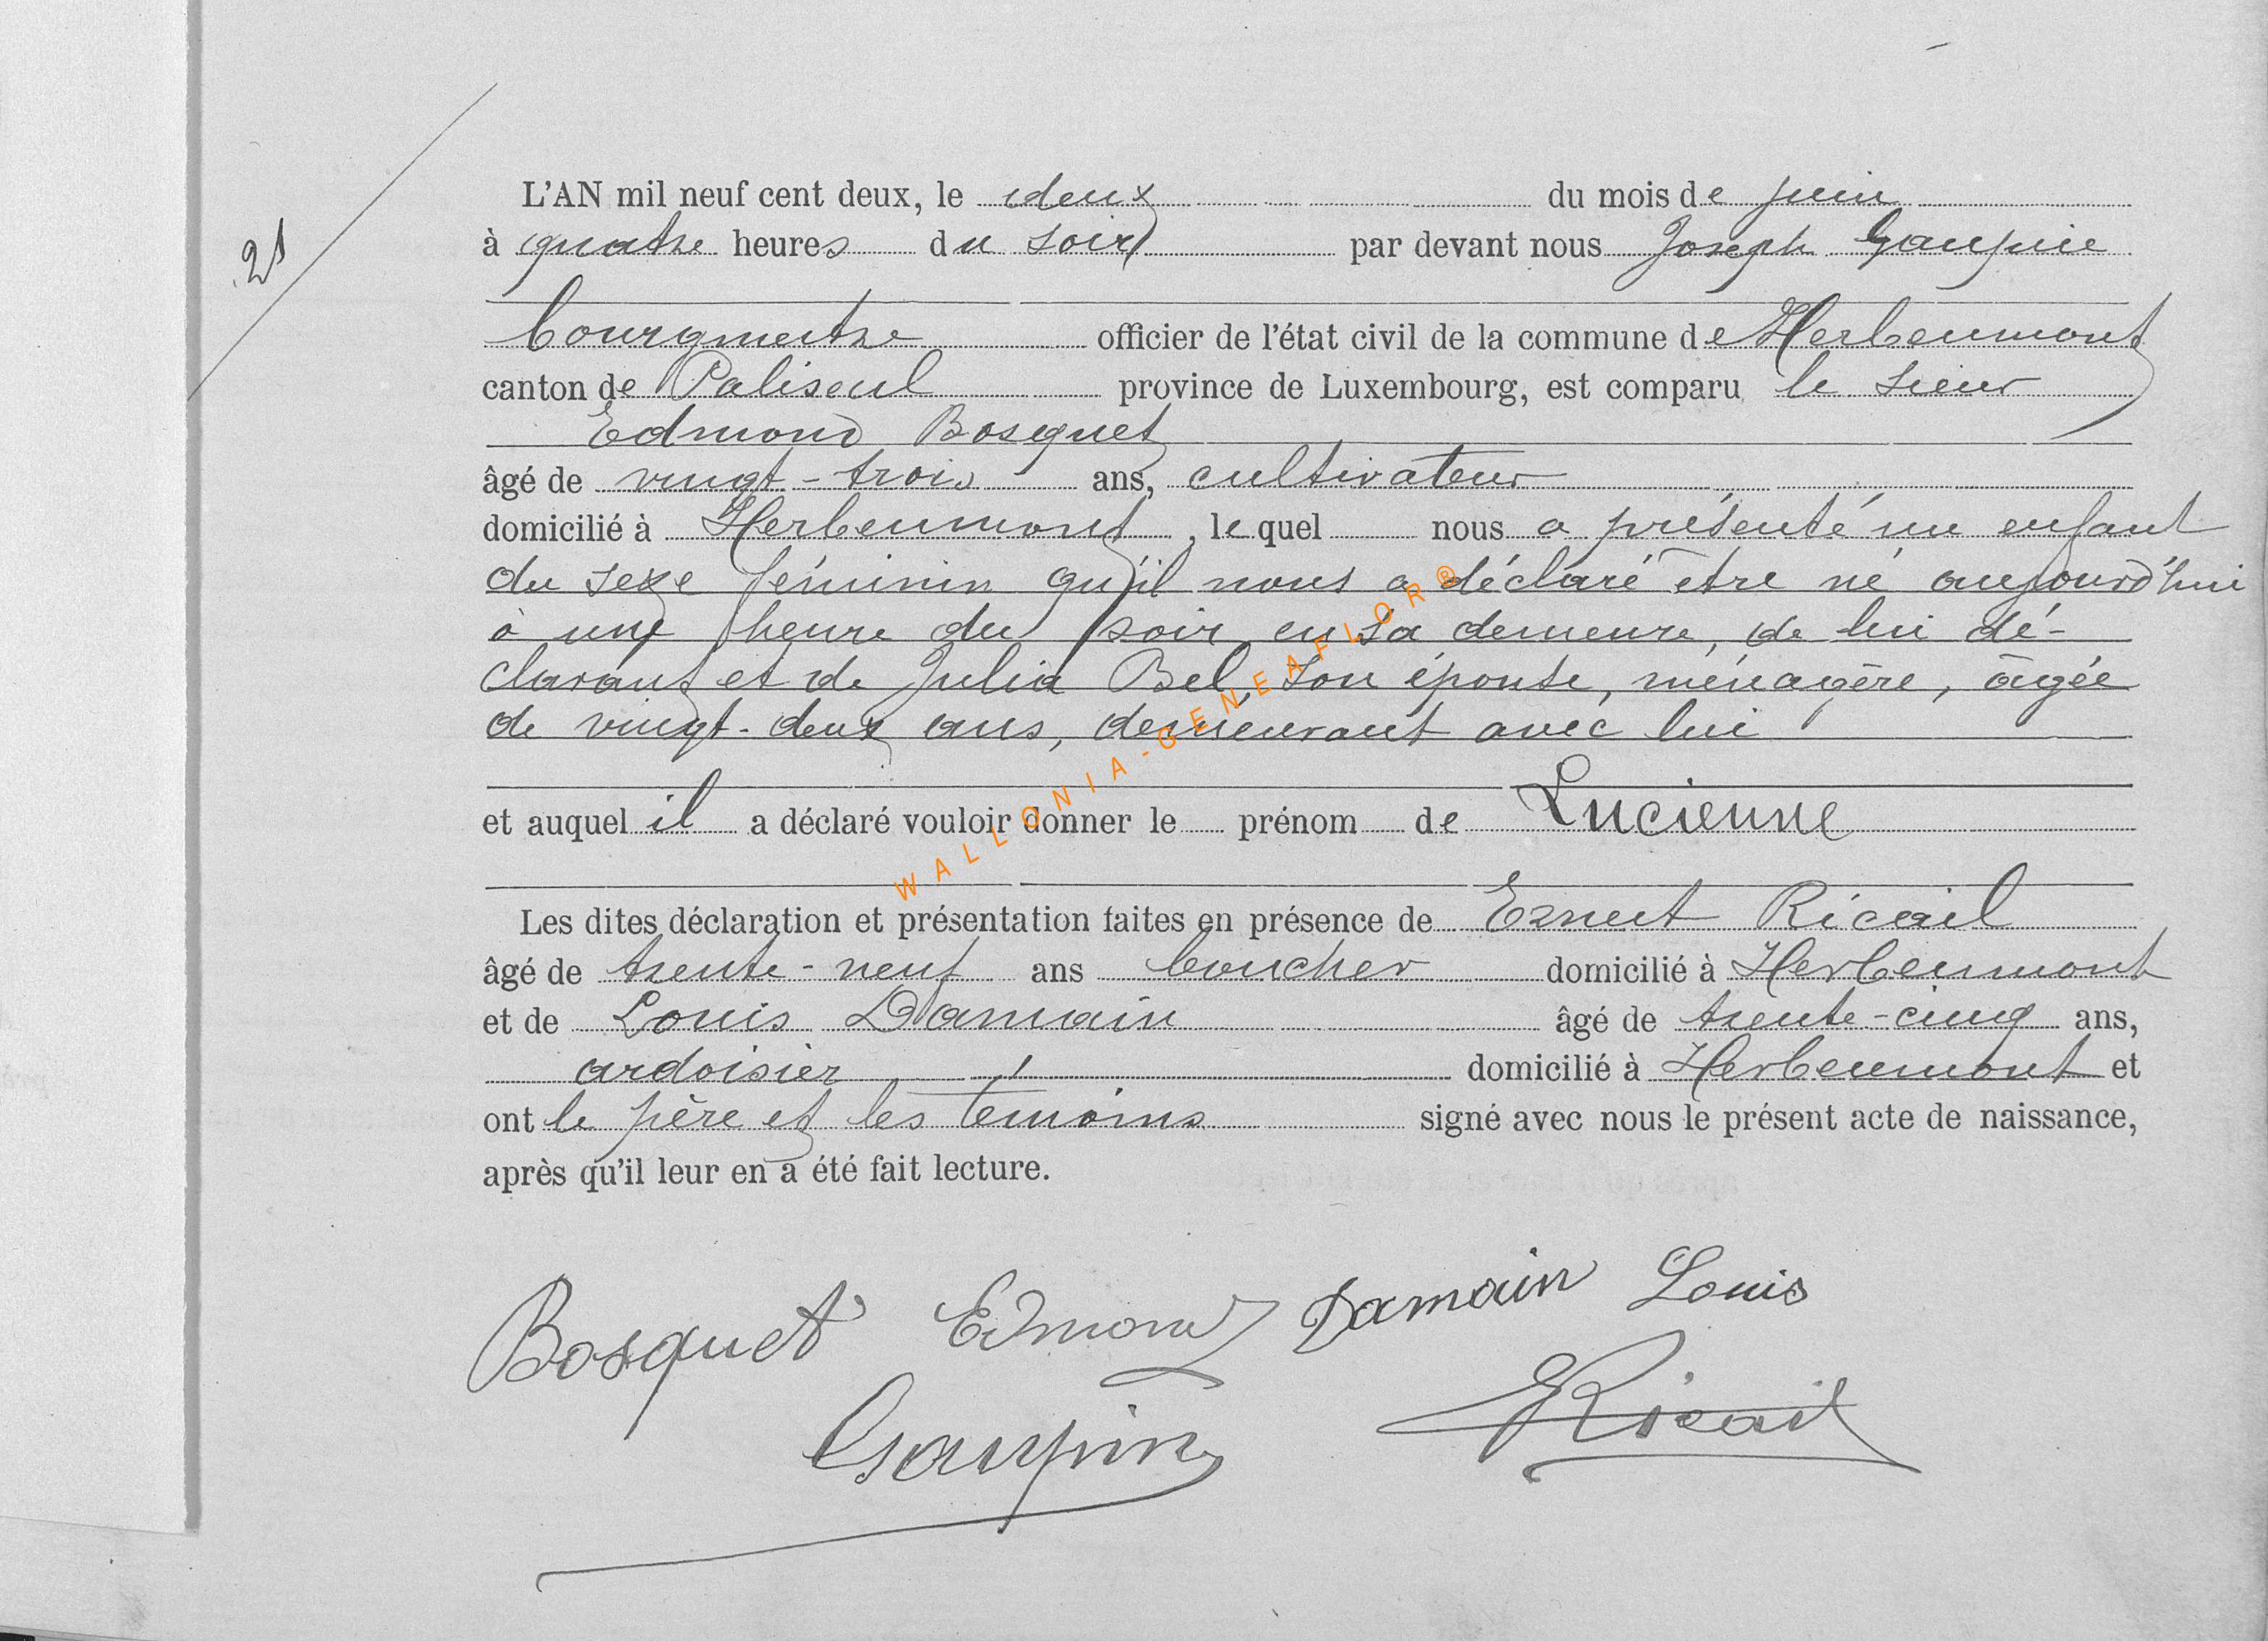 21
L'AN mil neuf cent deux, le deux du mois de juin
à quatre heures du soir par devant nous Joseph Gaupin
bourgmestre officier de l'état civil de la commune de Herbeumont
canton de Paliseul province de Luxembourg, est comparu le sieur
Edmond Bosquet
âgé de vingt-trois ans, cultivateur
domicilié à Herbeumont, lequel nous a présenté un enfant
du sexe féminin qu'il nous a déclaré être né aujourd'hui
à une heure du soir en sa demeure, de lui dé-
clarant et de Julia Bel, son épouse, ménagère, âgée
de vingt-deux ans, demeurant avec lui
et auquel il a déclaré vouloir donner le prénom de Lucienne
Les dites déclaration et présentation faites en présence de Ernest Ricail
âgé de trente-neuf ans boucher domicilié à Herbeumont
et de Louis Damain âgé de trente-cinq ans,
ardoisier domicilié à Herbeumont et
ont le père et les témoins signé avec nous le présent acte de naissance,
après qu'il leur en a été fait lecture.
Bosquet Edmond Damain Louis
Gaupin ERicail
WALLONIA-GENEAFLOR®